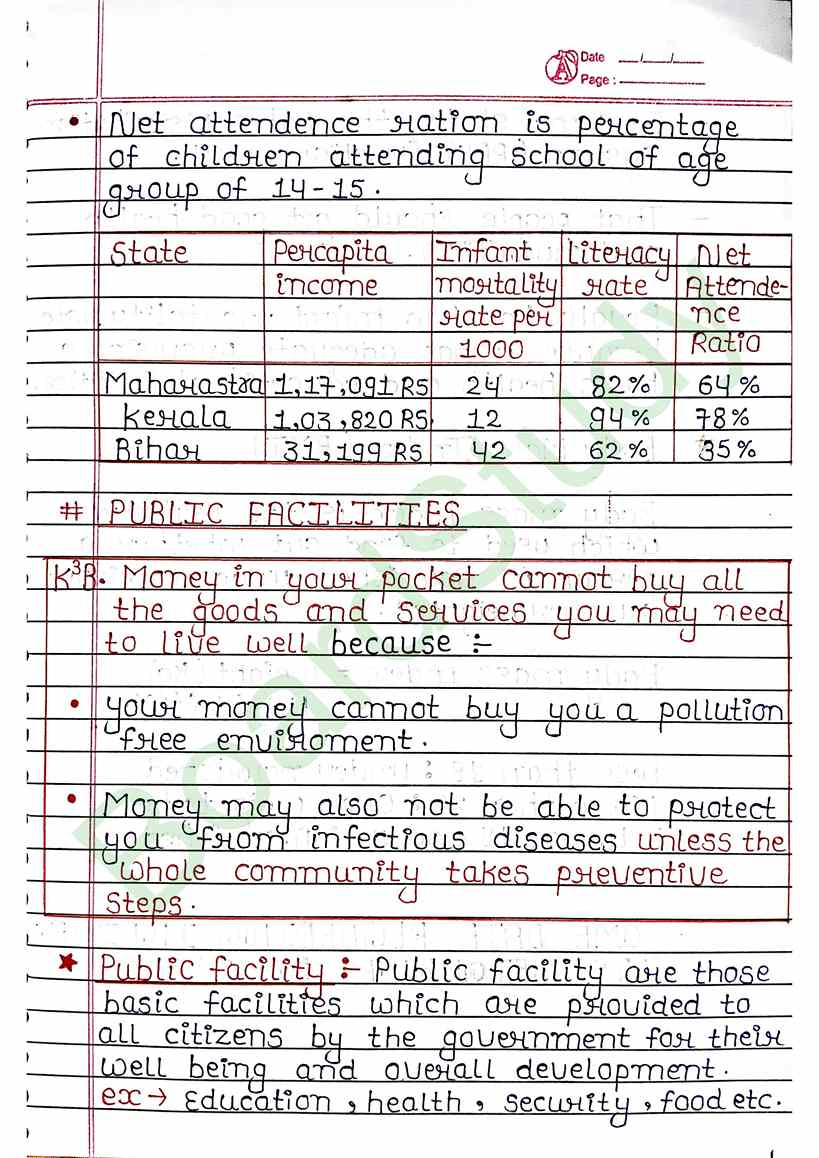 Date __/__/__
Page : ______
• Net attendence ration is percentage
of children attending school of age
group of 14-15.
State Percapita income Infant mortality rate per 1000 Literacy rate Net Attende-nce Ratio
Maharastra 1,17,091 RS 24 82% 64%
Kerala 1,03,820 RS 12 94% 78%
Bihar 31,199 RS 42 62% 35%
# PUBLIC FACILITIES
K³B. Money in your pocket cannot buy all
the goods and services you may need
to live well because :-
• your money cannot buy you a pollution
free enviroment.
• Money may also not be able to protect
you from infectious diseases unless the
whole community takes preventive
steps.
★ Public facility :- Public facility are those
basic facilities which are provided to
all citizens by the government for their
well being and overall development.
ex → Education, health, security, food etc.
BoardStudy